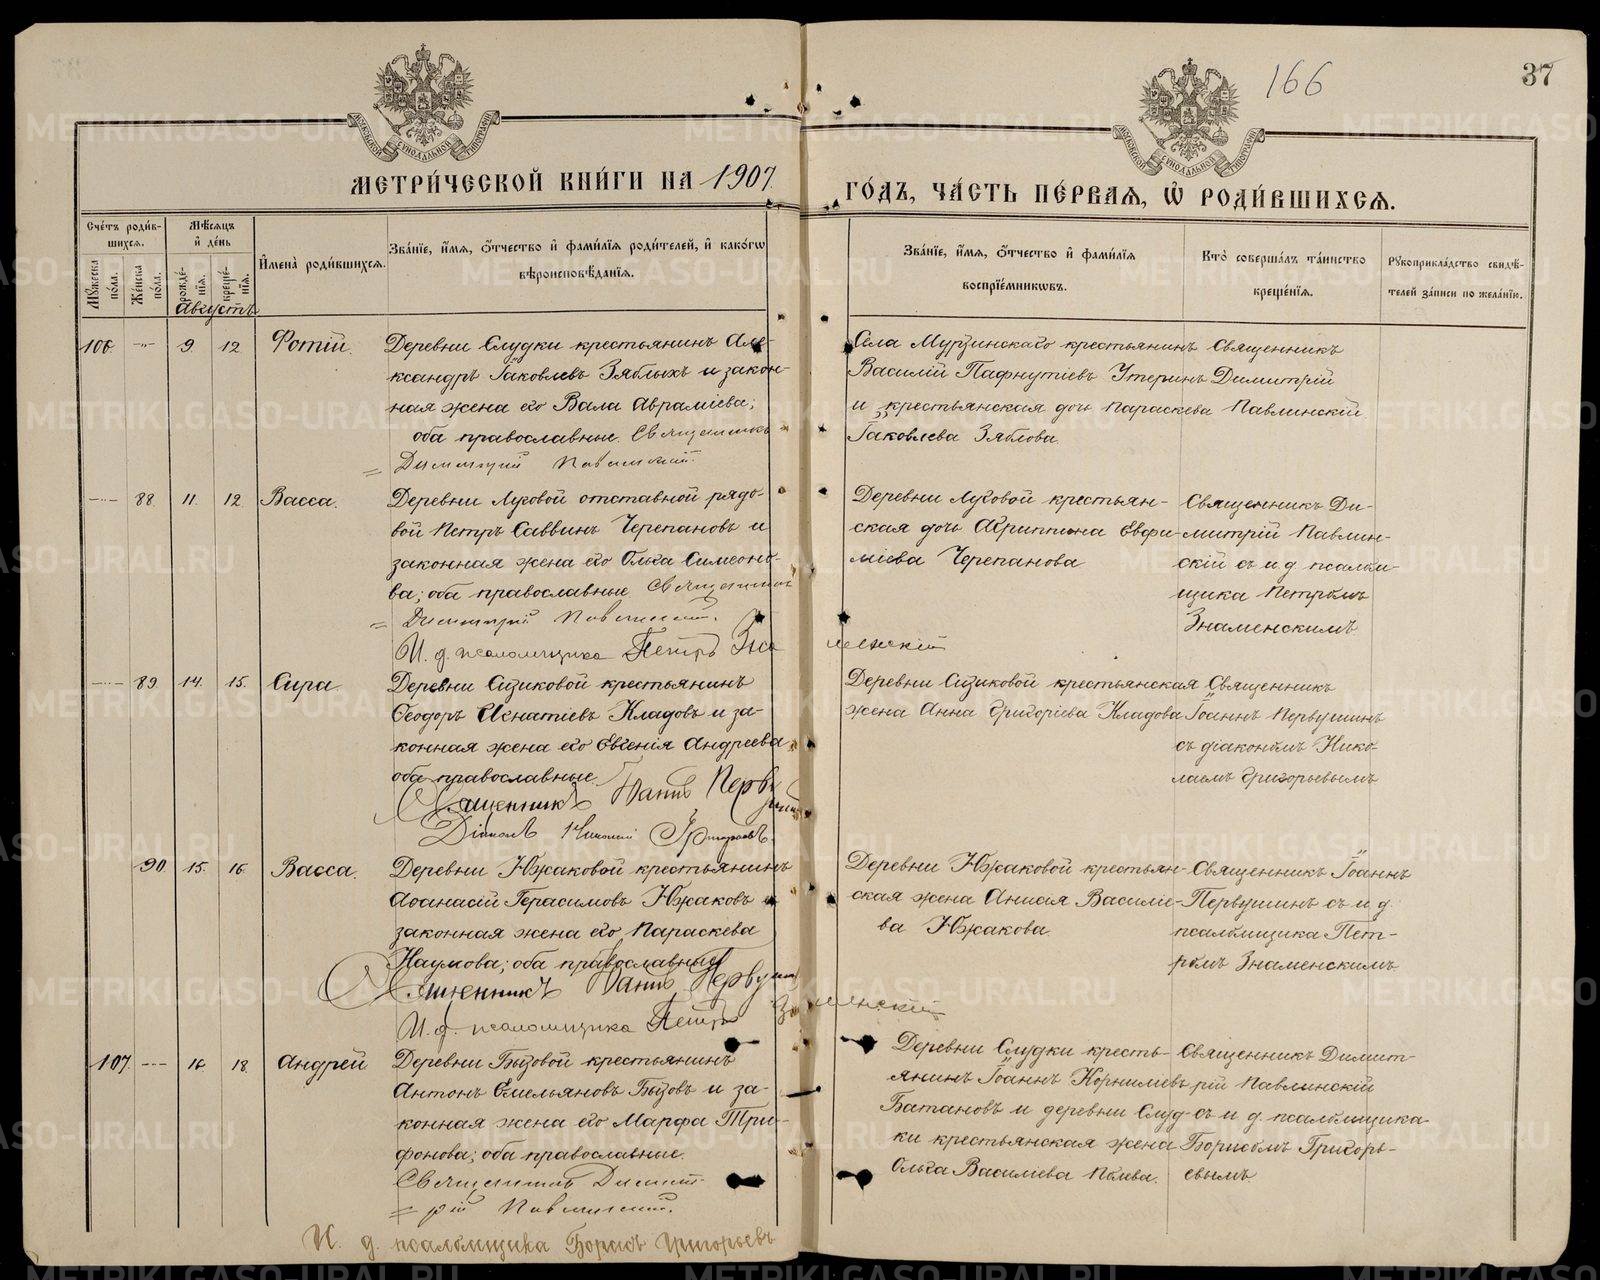 166
37
МОСКОВСКОЙ СѴНОДАЛЬНОЙ ТИПОГРАФІИ
МОСКОВСКОЙ СѴНОДАЛЬНОЙ ТИПОГРАФІИ
МЕТРИ́ЧЕСКОЙ КНИ́ГИ НА 1907
ГО́ДЪ, ЧА́СТЬ ПЕ́РВАѦ, Ѡ҆ РОДИ́ВШИХСѦ.
Сче́тъ роди́в-
шихся.
Мѣ́сяцъ
и҆ де́нь
Мꙋ́жеска по́ла.
Же́нска по́ла.
рожде́нїя.
креще́нїя.
И҆мена̀ роди́вшихсѧ.
Зва́нїе, и҆́мѧ, ѻ҆́тчество и҆ фами́лїѧ роди́телей, и҆ како́гѡ
вѣроисповѣ́данїѧ.
Зва́нїе, и҆́мѧ, ѻ҆́тчество и҆ фами́лїѧ
воспрїе́мникѡвъ.
Кто̀ соверша́лъ та́инство
креще́нїѧ.
Рꙋкоприкла́дство свидѣ́-
телей за́писи по жела́нїю.
Августъ
106 — 9. 12 Фотій.
Деревни Слудки крестьянинъ Але-
ксандръ Іаковлевъ Зяблыхъ и закон-
ная жена его Вала Аврамiева;
оба православные. Священникъ
= Димитрий Павлинский.
Села Мурзинскаго крестьянинъ
Василій Пафнутіевъ Утеринъ
и крестьянская дочь Параскева
Іаковлева Зяблова.
Священникъ
Димитрій
Павлинскій
— 88. 11. 12 Васса.
Деревни Луговой отставной рядо-
вой Петръ Саввинъ Черепановъ и
законная жена его Ольга Симеоно-
ва; оба православные. Священникъ
= Димитрий Павлинский.
И. д. псаломщика Петръ Знаменскій
Деревни Луговой крестьян-
ская дочь Агриппина Евфи-
міева Черепанова
Священникъ Ди-
митрій Павлин-
скій съ и д псалом-
щика Петромъ
Знаменскимъ
— 89 14. 15. Сира.
Деревни Сизиковой крестьянинъ
Ѳеодоръ Игнатіевъ Кладовъ и за-
конная жена его Евгенія Андреева
оба православные.
Священникъ Іоаннъ Первушинъ
Діаконъ Николай Григорьевъ.
Деревни Сизиковой крестьянская
жена Анна Григоріева Кладова
Священникъ
Іоаннъ Первушинъ
съ діакономъ Нико-
лаемъ Григорьевымъ
90. 15. 16. Васса.
Деревни Южаковой крестьянинъ
Аѳанасій Герасимовъ Южаковъ и
законная жена его Параскева
Наумова; оба православные
Священникъ Іоаннъ Первушинъ
И. д. псаломщика Петръ Знаменскій
Деревни Южаковой крестьян-
ская жена Анисія Василіе-
ва Южакова.
Священникъ Іоаннъ
Первушинъ съ и д.
псаломщика Пет-
ромъ Знаменскимъ
107. — 16 18. Андрей
Деревни Бызовой крестьянинъ
Антонъ Емельяновъ Бызовъ и за-
конная жена его Марфа Три-
фонова; оба православные.
Священникъ Димит-
= рій Павлинский.
И. д. псаломщика Борисъ Григорьевъ
Деревни Слудки кресть-
янинъ Іоаннъ Корниліевъ
Батановъ и деревни Слуд-
ки крестьянская жена
Ольга Василіева
Священникъ Димит-
рій Павлинскій
съ и д. псаломщика
Борисомъ Григорь-
евымъ.
METRIKI.GASO-URAL.RU